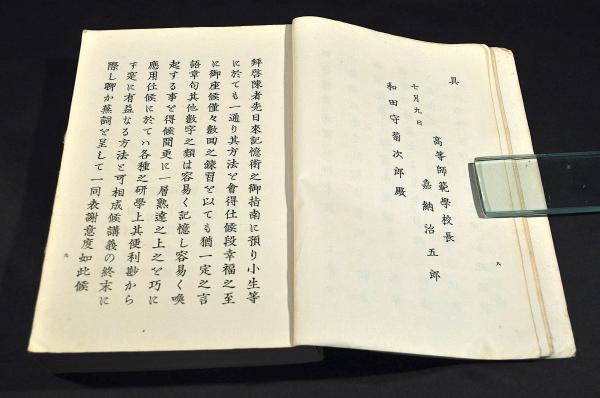 具
七月九日
高等師範學校長
嘉納治五郎
和田守菊次郎殿
八
拜啓陳者先日來記憶術之御指南に預り小生等
に於ても一通り其方法を會得仕候段幸福之至
に御座候僅々數回之練習を以ても猶一定之言
語章句其他數字之類は容易く記憶し容易く喚
起する事を得候間更に一層熟達之上之を巧に
應用仕候に於てハ各種之研學上其便利尠から
す寔に有益なる方法と可相成候講義の終末に
際し聊か蕪詞を呈して一同表謝意度如此候
九